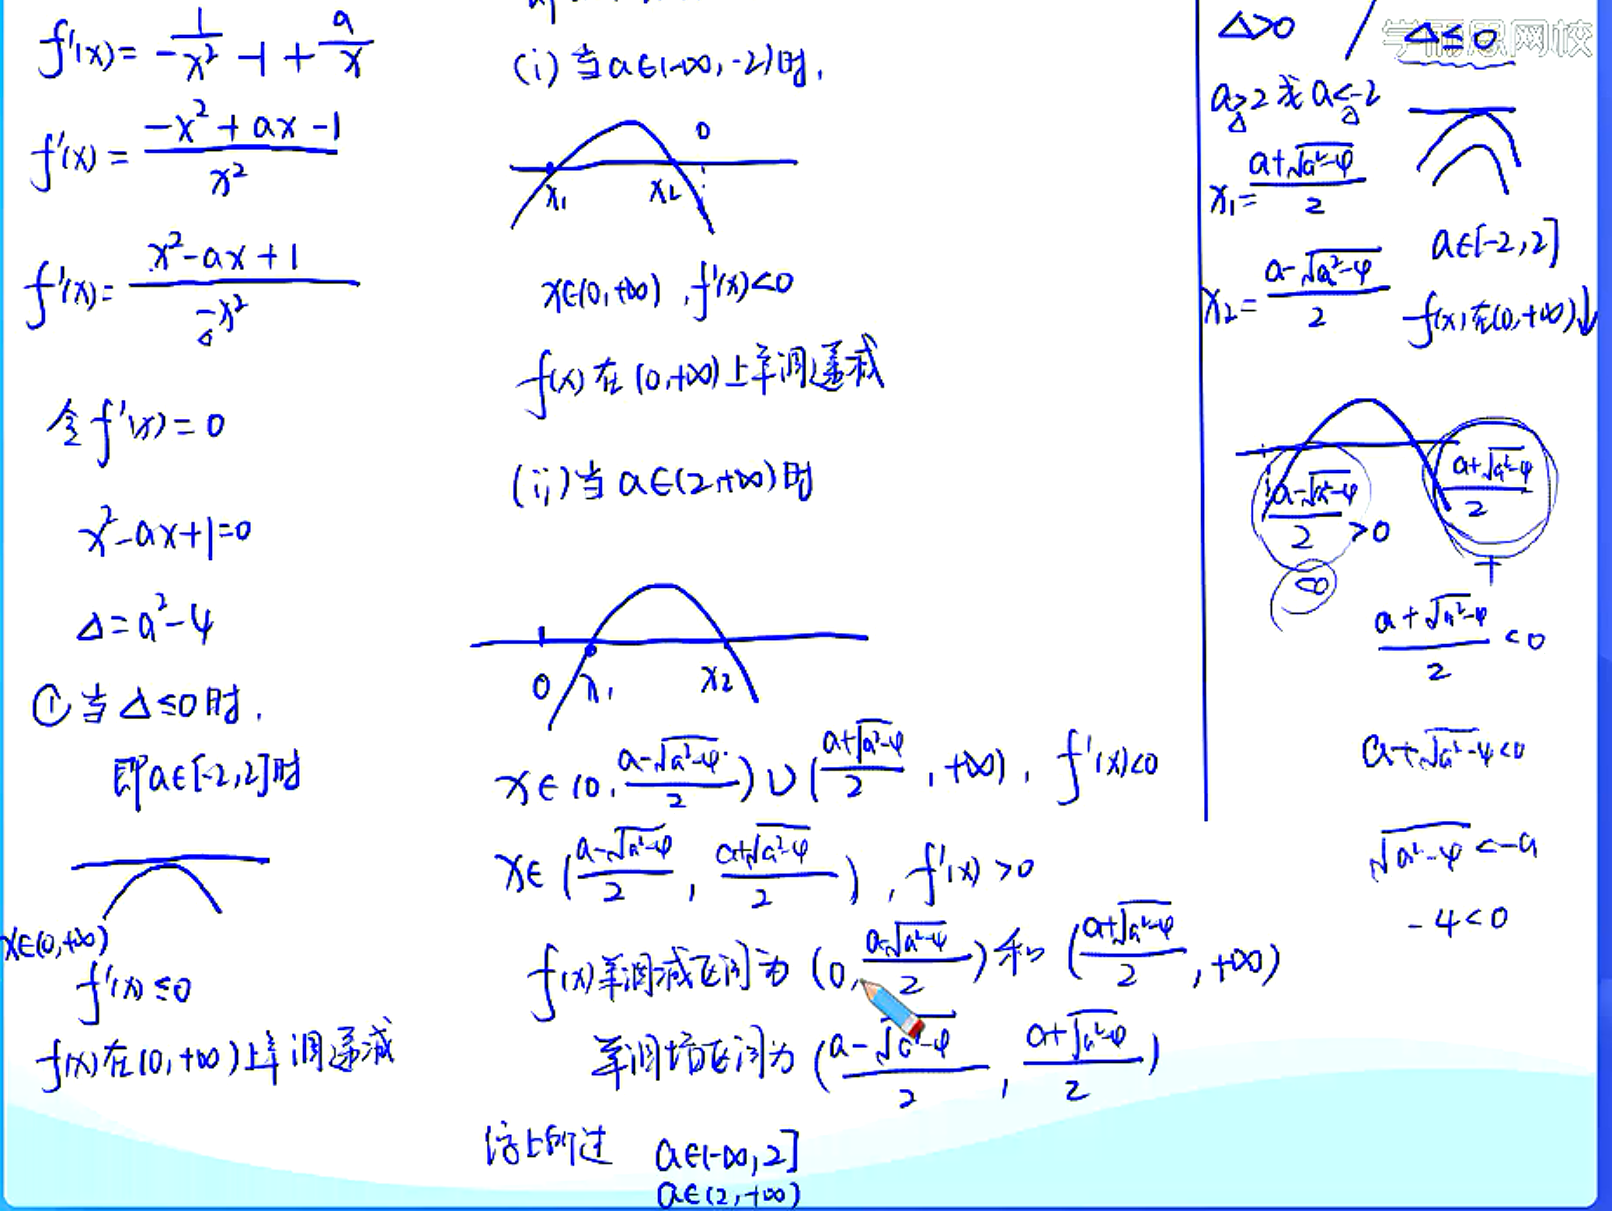 f'(x)= 1/-x² -1 + a/x
f'(x)= -x²+ax-1/x²
f'(x)= x²-ax+1/-x²
令f'(x)=0
x²-ax+1=0
Δ=a²-4
①当Δ≤0时,
即a∈[-2,2]时
x∈(0,+∞)
f'(x)≤0
f(x)在(0,+∞)上单调递减
(i)当a∈(-∞,-2)时,
0
x₁ x₂
x∈(0,+∞),f'(x)<0
f(x)在(0,+∞)上单调递减
(ii)当a∈(2,+∞)时
0 x₁ x₂
x∈(0, a-√a²-4/2)∪(a+√a²-4/2, +∞), f'(x)<0
x∈(a-√a²-4/2, a+√a²-4/2), f'(x)>0
f(x)单调减区间为(0, a-√a²-4/2)和(a+√a²-4/2, +∞)
单调增区间为(a-√a²-4/2, a+√a²-4/2)
综上所述 a∈(-∞,2]
a∈(2,+∞)
学而思网校
Δ>0 / Δ≤0
a>2或a<-2
x₁= a+√a²-4/2
x₂= a-√a²-4/2
a∈[-2,2]
f(x)在(0,+∞)↓
a-√a²-4/2 >0
<0
a+√a²-4/2
+
a+√a²-4/2 <0
a+√a²-4<0
√a²-4<-a
-4<0